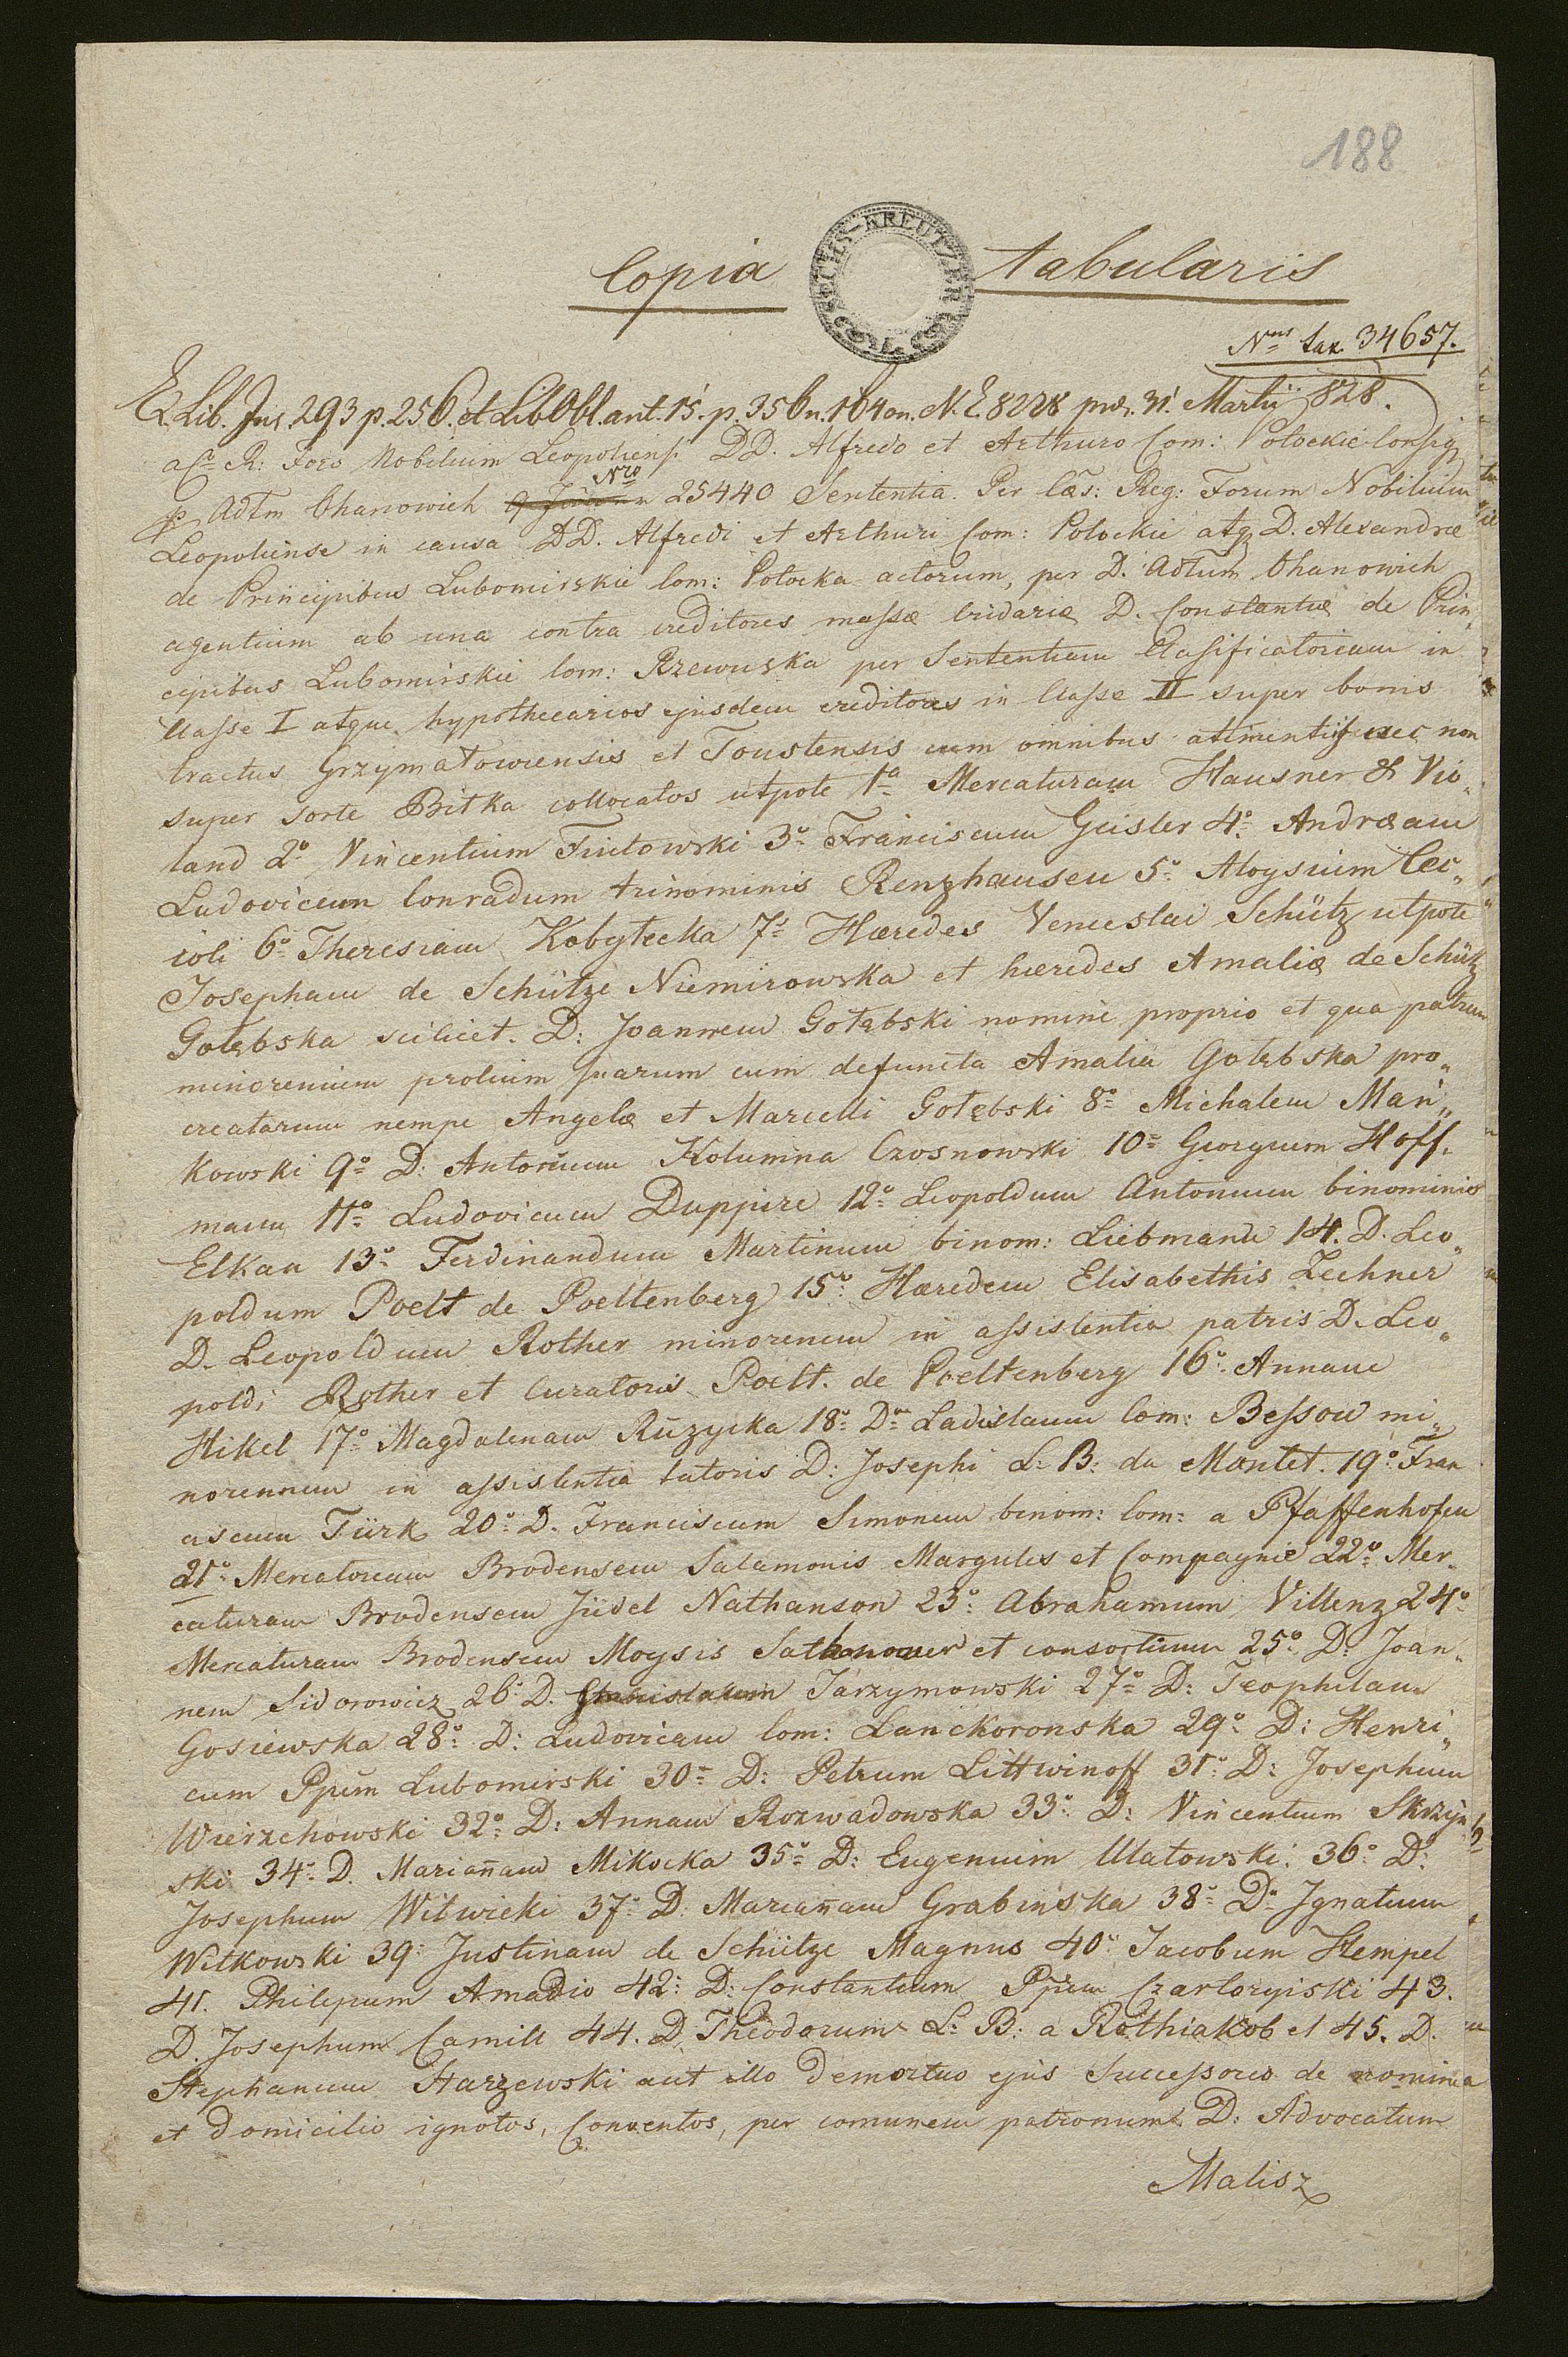 188
Copia tabularis
SECHS-KREUTZER
Nrus tax. 34657.
E Lib. Ins. 293 p. 256. et Lib Obl. ant. 15. p. 356 n. 164 on. N. E. 8228 prs. 31. Martii 828.
a R: Foro Nobilium Leopoliens. DD. Alfredo et Arthuro Com: Potockie consig
p Adtm Chanowich Nro 25440 Sententia. Per Cæs: Reg: Forum Nobilium
Leopoliense in causa DD. Alfredi et Arthuri Com: Potockie atq D. Alexandræ
de Principibus Lubomirskie Com: Potocka actorum, per D. Adtum Chanowich
agentium ab una contra creditores massæ cridariæ D. Constantiæ de Prin„
cipibus Lubomirskie Com: Rzewuska per Sententiam Classificatoriam in
Classe I atque hypothecarios ejusdem creditores in Classe II super bonis
tractus Grzymałowiensis et Toustensis cum omnibus attinentiis nec non
super sorte Bitka collocatos utpote 1a Mercaturam Hausner & Vio„
land 2o Vincentium Tintowski 3o Franciscum Geisler 4o Andræam
Ludovicum Conradum trinominis Renzhausen 5o Aloysium Cec„
cioli 6o Theresiam Kobytecka 7o Hæredes Venceslai Schütz utpote
Josepham de Schütze Niemirowska et hæredes Amaliæ de Schütz
Gołębska scilicet. D: Joannem Gołębski nomine proprio et qua patrem
minorenium prolium suarum cum defuncta Amalia Gołębska pro„
creatarum nempe Angelæ et Marcelli Gołębski 8o Michalem Mań„
kowski 9o D: Antonium Kolumna Czosnowski 10o Georgium Hoff„
mann 11o Ludovicum Duppire 12o Leopoldum Antonium binominis
Elkan 13o Ferdinandum Martinum binom: Liebmann 14. D. Leo„
poldum Poelt de Poeltenberg 15o Hæredem Elisabethis Zechner
D. Leopoldum Rother minorenem in assistentia patris D. Leo„
poldi Rother et Curatoris Poelt. de Poeltenberg 16o Annam
Hikel 17o Magdalenam Ruzycka 18o Dm Ladislaum Com: Bessow mi„
norennem in assistentia tutoris D: Josephi L: B: du Montet. 19o Fran
ciscum Türk 20o D. Franciscum Simonem binom: Com: a Pfaffenhofen
21o Mercatoream Brodensem Salamonis Margules et Compagnie 22o Mer„
caturam Brodensem Jüdel Nathanson 23o Abrahamum Villenz 24o
Mercaturam Brodensem Moysis Sathanower et consortium 25o D: Joan„
nem Sidorowicz 26o D. Stanislaum Jarzymowski 27o D: Teophilam
Gosiewska 28o D: Ludovicam Com: Lanckoronska 29o D: Henri„
cum Ppum Lubomirski 30o D: Petrum Littwinoff 31o D: Josephum
Wierzchowski 32o D: Annam Rozwadowska 33o D: Vincentium Skrzyn„
ski 34o D. Mariañam Mikocka 35o D: Eugenium Ulatowski. 36o D:
Josephum Witwicki 37o D: Mariañam Grabinska 38o Dm Ignatium
Witkowski 39o Justinam de Schütze Magnus 40o Jacobum Hempel
41. Philipum Amadio 42o D: Constantium Ppem Czartoryiski 43.
D. Josephum Camill 44. D. Theodorum L: B: a Rothiakob et 45. D.
Stephanum Starzewski aut illo demortuo ejus Successores de nomine
et domicilio ignotos, Conventos, per comunem patronum D: Advocatum
Malisz